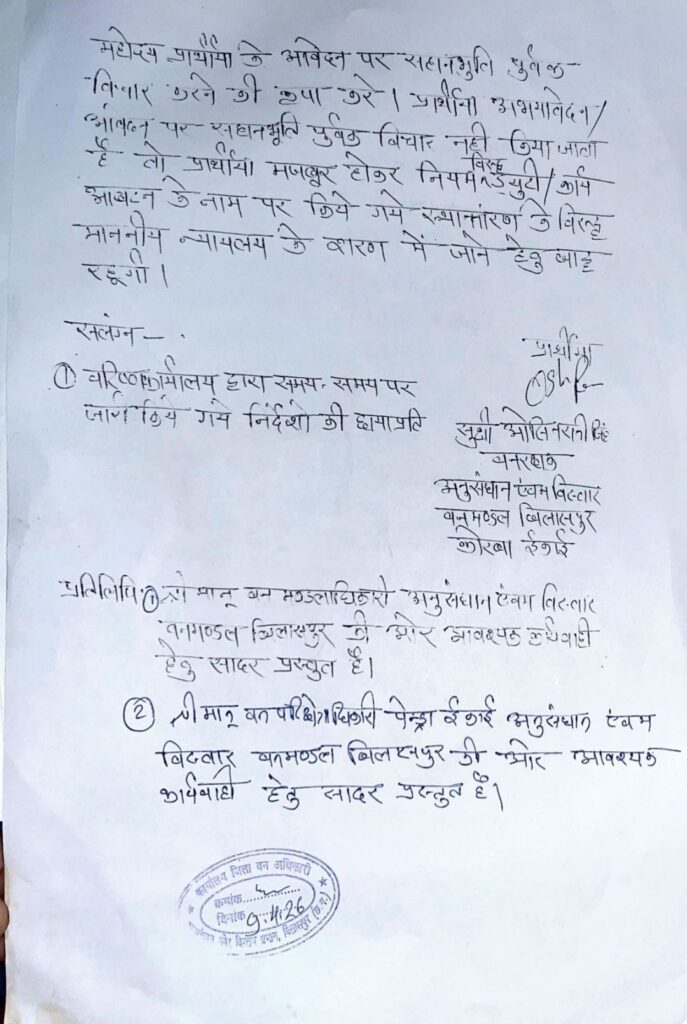 महोदय प्रार्थीया के आवेदन पर सहानभुति पुर्वक
विचार करने की कृपा करे। प्रार्थीनी अभ्यावेदन/
आवेदन पर सहानभूति पुर्वक विचार नही किया जाता
है तो प्रार्थीया मजबूर होकर नियम विरुद्ध ड्युटी/कार्य
आबंटन के नाम पर किये गये स्थानांतरण के विरुद्ध
माननीय न्यायलय के शरण में जाने हेतु बाध्य
रहूगी।
सलंग्न —
① वरिष्ठ कार्यालय द्वारा समय-समय पर
जारी किये गये निर्देशो की छायाप्रति
प्रार्थीया
सुश्री ओलिनरानी सिंह
वनरक्षक
अनुसंधान एंवम विस्तार
वनमण्डल बिलासपुर
कोरबा ईकाई
प्रतिलिपि:① श्री मान् वन मण्डलाधिकारी अनुसंधान एंवम विस्तार
वनमण्डल बिलासपुर की ओर आवश्यक कार्यवाही
हेतु सादर प्रस्तुत है।
② श्री मान् वन परिक्षेत्राधिकारी पेन्ड्रा ईकाई अनुसंधान एंवम
विस्तार वनमण्डल बिलासपुर की ओर आवश्यक
कार्यवाही हेतु सादर प्रस्तुत है।
कार्यालय जिला वन अधिकारी
क्रमांक
दिनांक 9.4.26
बिलासपुर (छ.ग.)